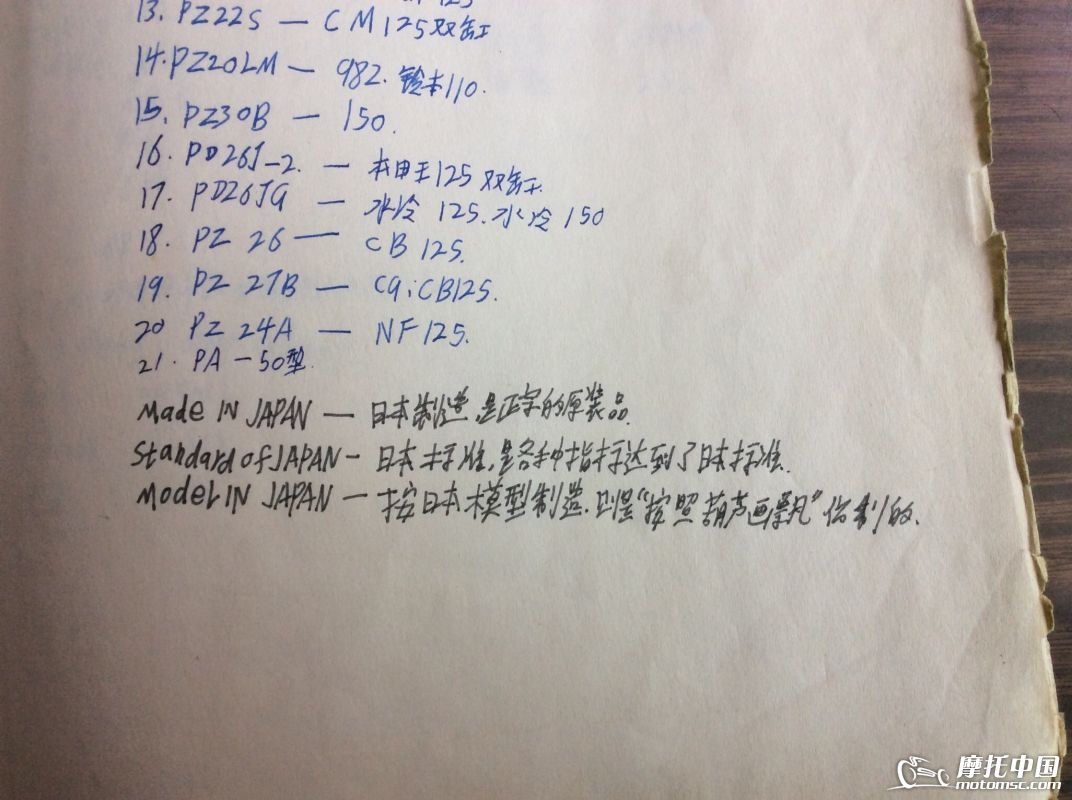 13. PZ22S — CM125双缸
14. PZ20LM — 982. 铃木110.
15. PZ30B — 150.
16. PD26J-2. — 本田王125双缸.
17. PD26JG — 水冷125. 水冷150
18. PZ 26 — CB 125.
19. PZ 27B — CG; CB125.
20 PZ 24A — NF125.
21. PA-50型.
Made IN JAPAN — 日本制造, 是正宗的原装品.
Standard of JAPAN - 日本标准, 是各种指标达到了日本标准.
Model IN JAPAN — 按日本模型制造. 则是"按照葫芦画瓢"仿制的.
摩托中国
motomsc.com